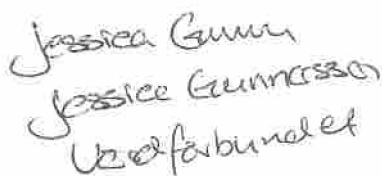 Jessica Gunn
Jessica Gunnarsson
Vårdförbundet